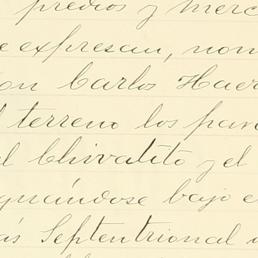 predios y merc
e expresan, nom
on Carlos Haer
l terreno los par
el Chivatito y el
guándose bajo e
ás Septentrional d